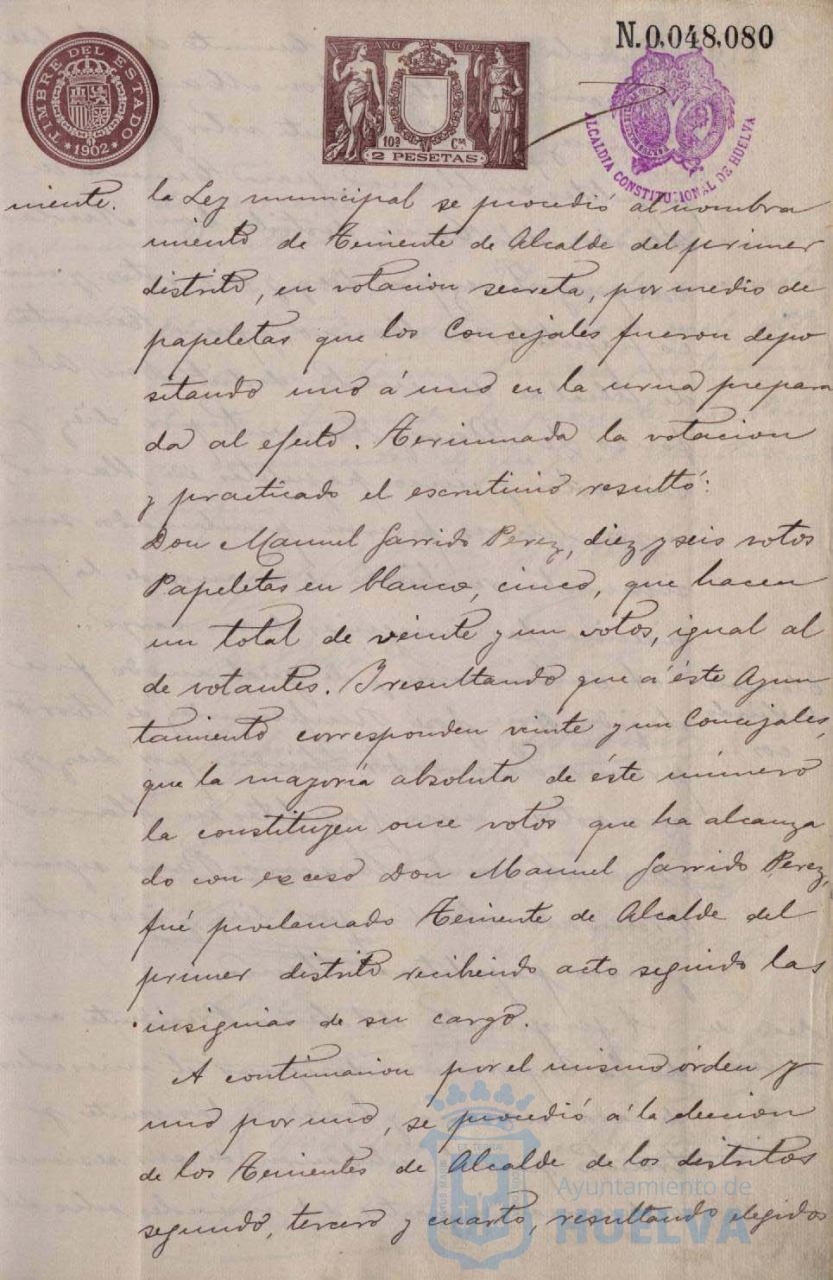 N.0,048,080
TIMBRE DEL ESTADO
* 1902 *
AÑO 1902
10ª Cª
2 PESETAS
ALCALDIA CONSTITUCIONAL DE HUELVA
miente.
la Ley municipal se procedió al nombra
miento de Teniente de Alcalde del primer
distrito, en votacion secreta, por medio de
papeletas que los Concejales fueron depo
sitando uno á uno en la urna prepara
da al efecto. Terminada la votacion
y practicado el escrutinio resultó:
Don Manuel Garrido Perez, diez y seis votos
Papeletas en blanco, cinco, que hacen
un total de veinte y un votos, igual al
de votantes. Y resultando que á éste Ayun
tamiento corresponden veinte y un Concejales,
que la mayoría absoluta de éste número
la constituyen once votos que ha alcanza
do con exceso Don Manuel Garrido Perez,
fué proclamado Teniente de Alcalde del
primer distrito recibiendo acto seguido las
insignias de su cargo.
A continuacion por el mismo órden y
uno por uno, se procedió á la eleccion
de los Tenientes de Alcalde de los distritos
segundo, tercero y cuarto, resultando elegidos
Ayuntamiento de
HUELVA